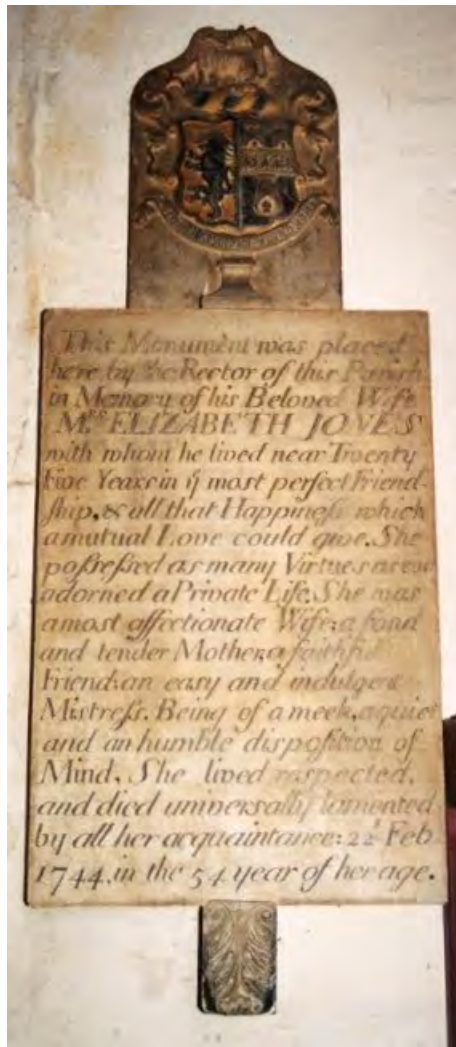 This Monument was placed
here by the Rector of this Parish
in Memory of his Beloved Wife
Mrs ELIZABETH JONES
with whom he lived near Twenty
Five Years in ye most perfect Friend-
ship, & all that Happineſs which
a mutual Love could give. She
poſseſsed as many Virtues as ever
adorned a Private Life. She was
a most affectionate Wife; a fond
and tender Mother; a faithful
Friend; an easy and indulgent
Miſtreſs. Being of a meek, a quiet
and an humble diſpoſition of
Mind, She lived respected,
and died universally lamented
by all her acquaintance: 22d Feb
1744, in the 54 year of her age.